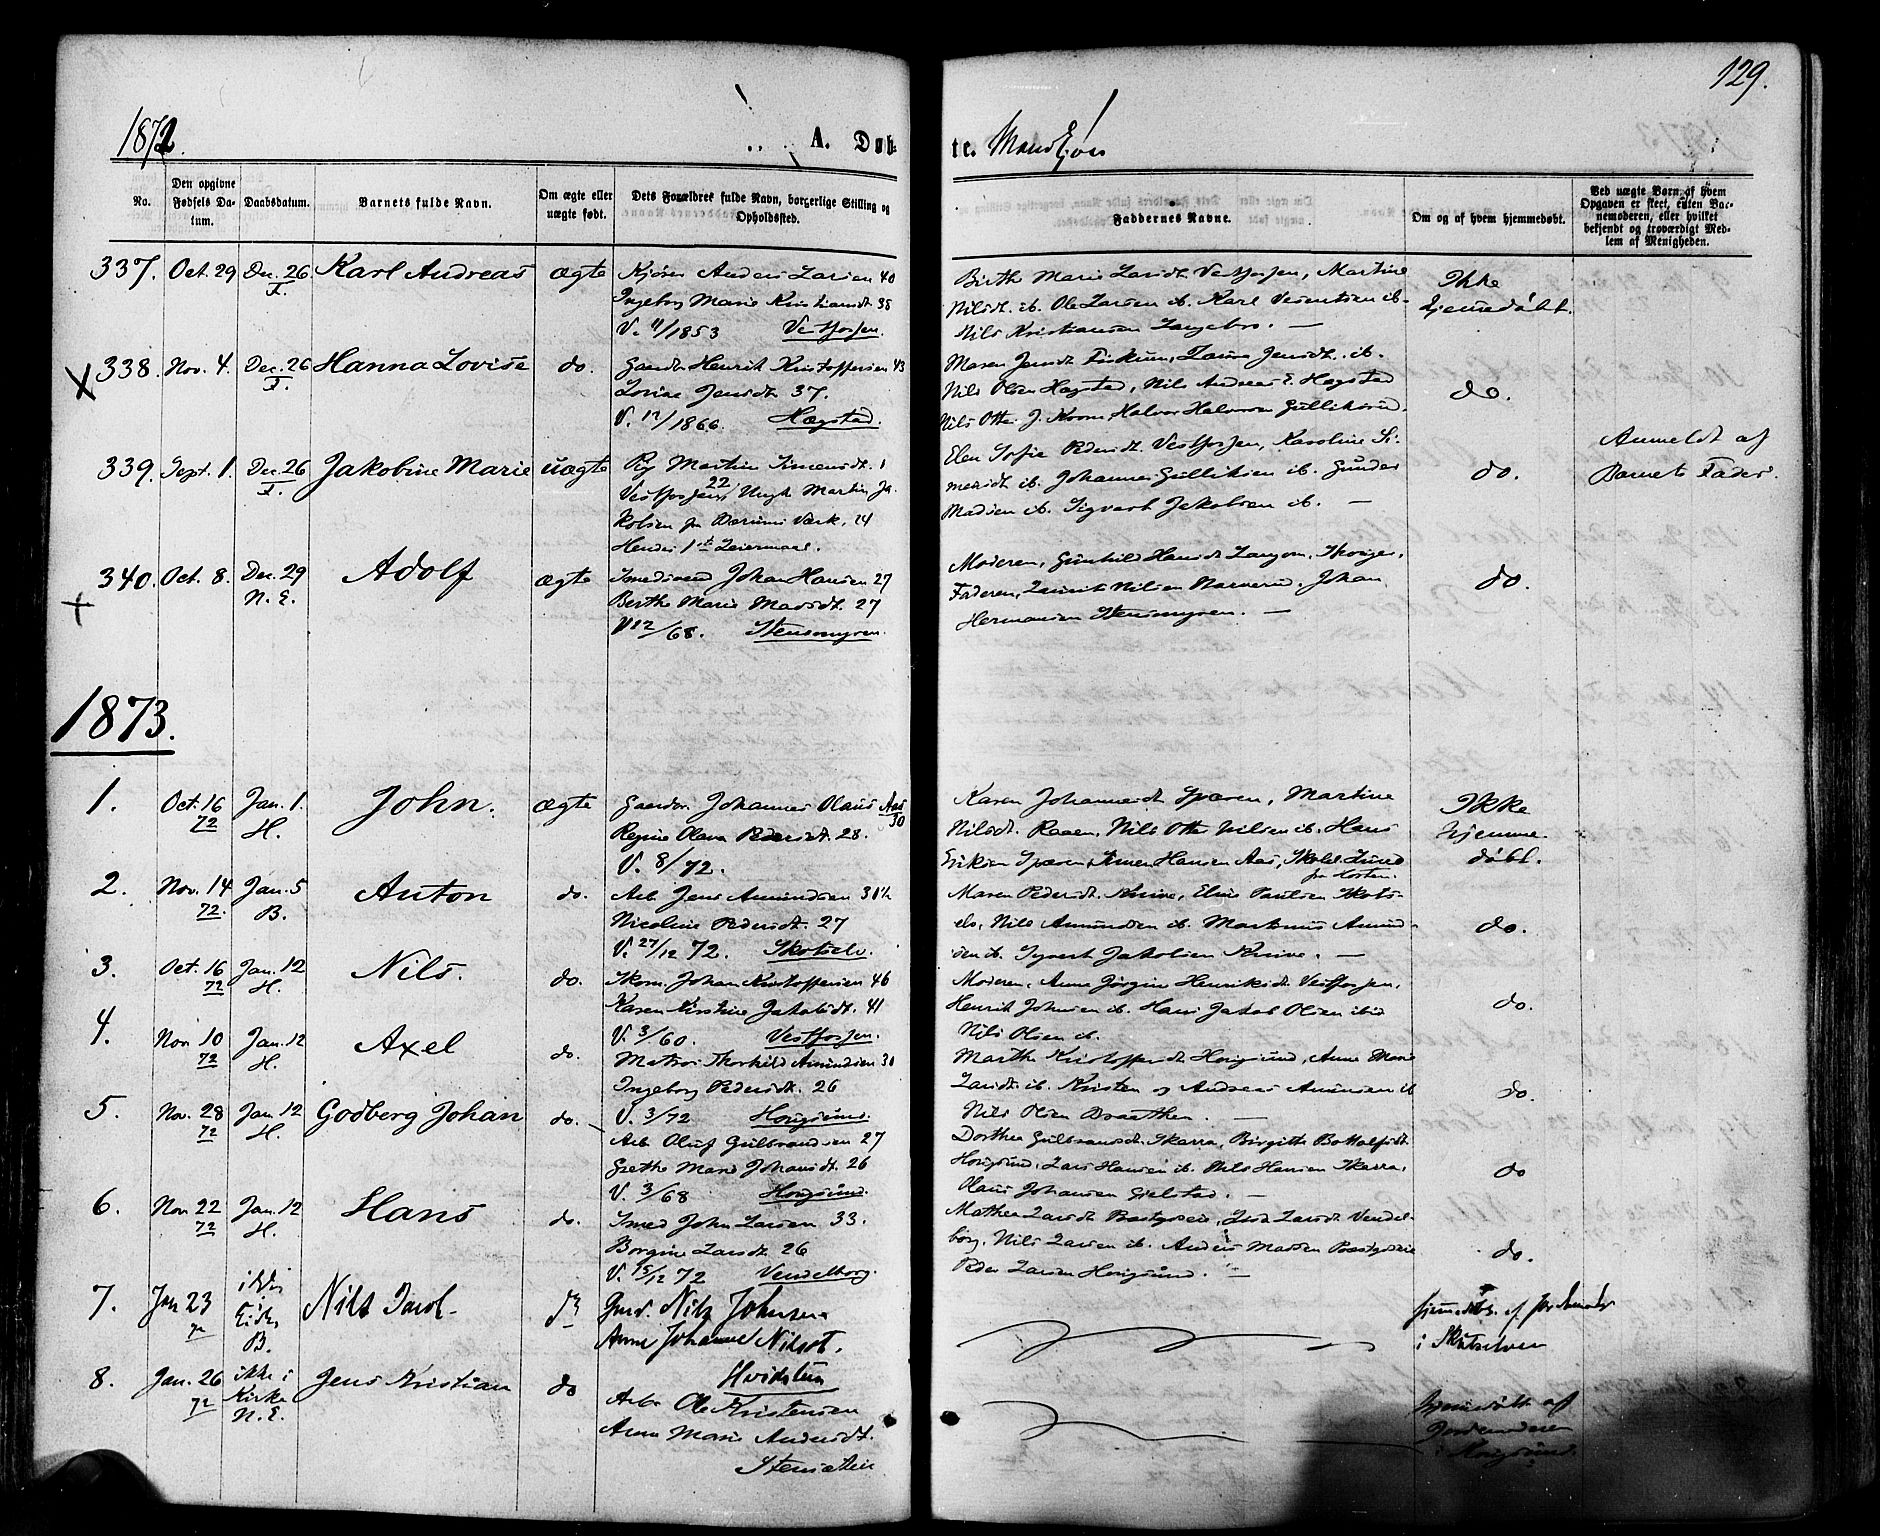 129.
1872. A. Døb-
te. Mandkjøn
No.
Den opgivne Fødsels Datum.
Daabsdatum.
Barnets fulde Navn.
Om ægte eller uægte født.
Dets Forældres fulde Navn, borgerlige Stilling og Opholdssted.
Faddernes Navne.
Om og af hvem hjemmedøbt.
Ved uægte Børn, af hvem Opgaven er skeet, enten Barnemoderen, eller hvilket bekjendt og troværdigt Medlem af Menigheden.
337. Oct. 29 Dec. 26 Karl Andreas ægte Kjører Anders Larsen 40
F. Ingeborg Marie Kristiansdt. 38
V. 11/1853 Vestfossen.
Birthe Marie Larsdt. Vestfossen, Martine
Nilsdt. ib. Ole Larsen ib. Karl Verentsen ib.
Nils Kristiansen Langebro. —
Ikke
hjemmedøbt.
338. Nov. 4. Dec. 26 Hanna Lovise do. Gaardbr. Henrik Kristoffersen 43
F. Lovise Jensdt. 37.
V. 12/1866. Hægstad.
Maren Jensdt. Fiskum, Laura Jensdt. ib.
Nils Olsen Hægstad, Nils Andreas E. Hægstad
Nils Otter J. Halvor Halvorsen Gulliksrud.
do.
339. Sept. 1. Dec. 26 Jakobine Marie uægte Pig. Martine Simensdt.
F. Vestfossen, 22 Ungk. Martin Ja-
kobsen fra Bærums Værk, 24
Hendes 1ste Leiermaal.
Elen Sofie Pedersdt. Vestfossen, Karoline Si-
mensdt. ib. Johannes Gulliksen ib. Gunder
Madsen ib. Sigvart Jakobsen ib. —
do.
Anmeldt af
Barnets Fader.
340. Oct. 8. Dec. 29 Adolf ægte Smedsvend Johan Hansen 27
N. E. Berthe Marie Madsdt. 27
V 12/68. Stensmyren
Moderen, Gunhild Hansdt.
Faderen, Laurits Nilsen Narverud. Johan
Hermansen Stensmyren. —
do.
1873.
1. Oct. 16 Jan. 1. John. ægte Gaardbr. Johannes Olaus Aas
72 H. 30
Regine Olava Pedersdt. 28.
V. 8/72.
Karen Johannesdt. Martine
Nilsdt. Nils Otter Nilsen ib. Hans
Eriksen Simen Hansen Aas,
Ikke
hjemme-
døbt.
2. Nov. 14 Jan. 5 Anton do. Arb. Jens Amundsen 30½
72. B. Nicoline Pedersdt. 27
V. 27/12 72. Skotselv.
Maren Pedersdt. Knive, Elens Paulsen Skots-
elv, Nils Amundsen ib. Martinus Amund-
sen ib. Syvert Jakobsen Knive. —
do.
3. Oct. 16 Jan. 12 Nils. do. Skom. Johan Kristoffersen 46
72 H. Karen Kirstine Jakobsdt. 41
V. 3/60. Vestfossen.
Moderen, Anne Jørgine Henriksdt. Vestfossen,
Henrik Johnsen ib. Hans Jakob Olsen ibid
Nils Olsen ib.
do
4. Nov. 10 Jan. 12 Axel do. Matros Thorkild Amundsen 30
72 H. Ingeborg Pedersdt. 26
V. 3/72 Hougsund.
Marthe Kristoffersdt. Hougsund, Anne Marie
Larsdt. ib. Kristen og Andreas Amundsen ib
Nils Olsen Braathen. —
do.
5. Nov. 28 Jan. 12 Godberg Johan do. Arb. Oluf Gulbrandsen 27
72 H. Grethe Marie Johansdt. 26
V. 3/68 Hougsund.
Dorthea Gulbransdt. Skarra, Birgitte Bottolfsdt.
Hougsund, Lars Hansen ib. Nils Hansen Skarra,
Olaus Johansen Gjelstad. —
do
6. Nov. 22 Jan. 12 Hans do. Smed John Larsen 33.
72 H. Borgine Larsdt. 26
V. 15/12 72 Vendelborg.
Mathea Larsdt. Larsdt. Vendel-
borg, Nils Larsen ib. Anders Madsen
Peder Larsen Hougsund. —
do.
7. Jan 23 ikke i Nils do Gaard. Nils Johnsen
72 Kirke, Anne Johanne Nilsdt.
B. Hvidsten
hjemmedøbt af Jordemoder
i Skotselven
8. Jan. 26 ikke i Jens Kristian do Arb. Ole Kristensen
72 Kirke Anne Marie Andersdt.
N. E. Stensætter
hjemmedøbt af
Jordemoderen
i Hougsund.